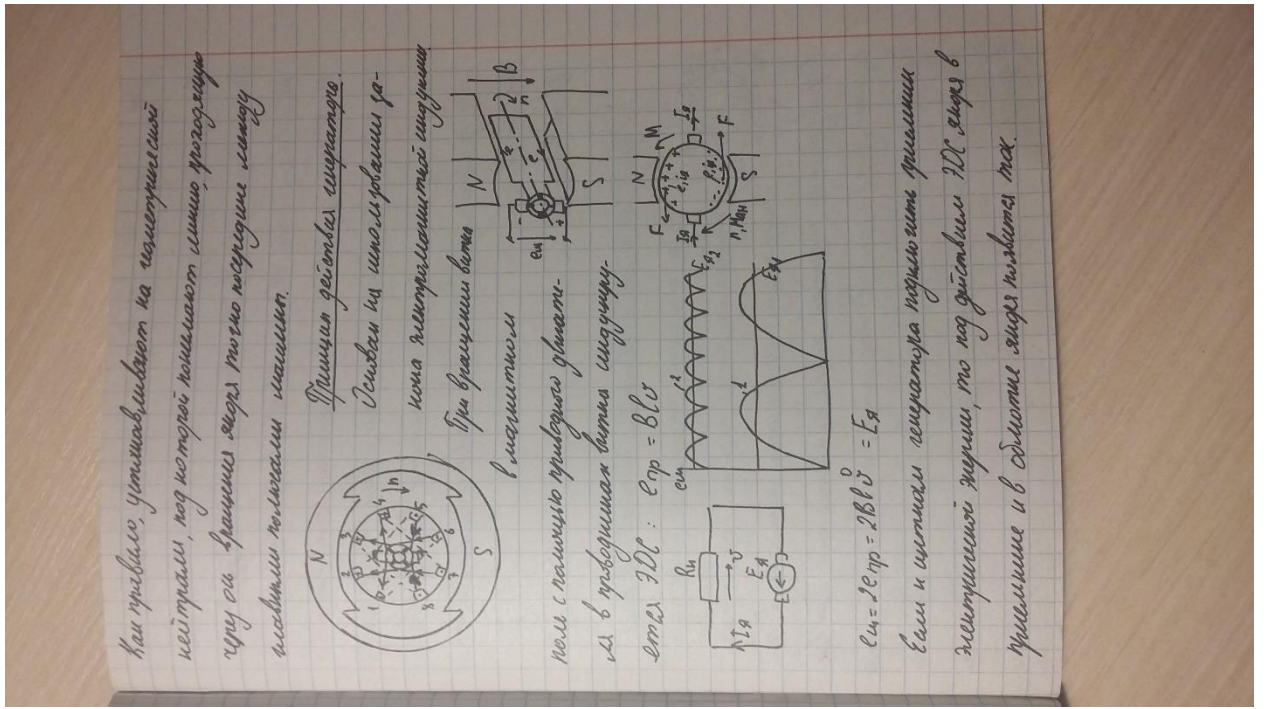 Как правило, устанавливают на геометрической
нейтрали, под которой понимают линию, проходящую
через ось вращения якоря точно посредине между
главными полюсами машины.
Принцип действия генератора.
Основан на использовании за-
кона электромагнитной индукции
При вращении витка
в магнитном
поле с помощью приводного двигате-
ля в проводниках витка индуциру-
ется ЭДС: eпр = Blv
N
1
2
3
4
5
6
7
8
n
S
N
S
B
n
e
e
eщ
-
+
Rн
Iя
U
Eя
eщ
Eя2
Eя1
N
S
F
F
M
Iя
Iя
e, iя
e, iя
n, Mвн
eщ = 2eпр = 2Blv = Eя
Если к щеткам генератора подключить приемник
электрической энергии, то под действием ЭДС якоря в
приемнике и в обмотке якоря появится ток.